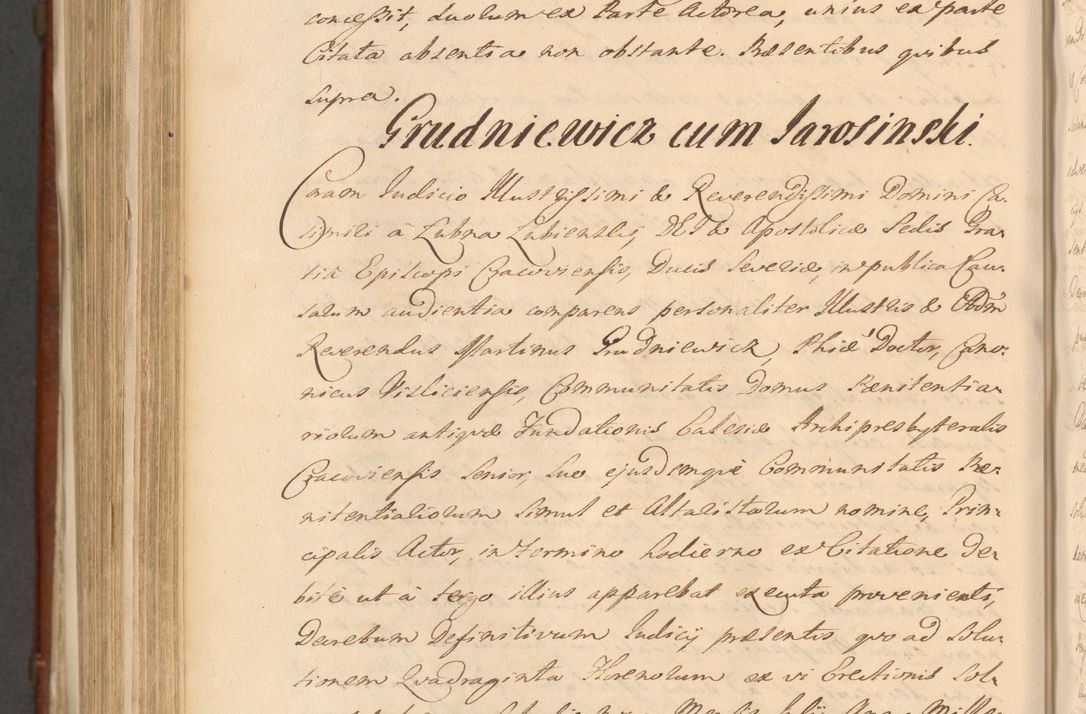 concessit, duorum ex Parte Actorea, unius ex parte
Citata absentia non obstante. Præsentibus quibus
supra.
Grudniewicz cum Jarosinski.
Coram Judicio Illustrissimi & Reverendissimi Domini Ca-
simiri à Łubna Łubienski, DEI & Apostolicæ Sedis Gra-
tia Episcopi Cracoviensis, Ducis Severiæ, in publica Cau-
sarum audientia comparens personaliter Illustris & Adm
Reverendus Martinus Grudniewicz, Phiæ Doctor, Cano-
nicus Visliciensis, Communitatis Domus Pænitentia-
riorum antiquæ Fundationis Ecclesiæ Archipresbyteralis
Cracoviensis Senior, suo ejusdemque Communitatis Pæ-
nitentiariorum simul et Altaristarum nomine, Prin-
cipalis Actor, in termino hodierno ex Citatione de-
bite ut à tergo illius apparebat executa proveniente,
Decretum Definitivum Judicij præsentis quo ad solu-
tionem Quadraginta Florenorum ex vi Erectionis
Mensis Julij Anno Mille-